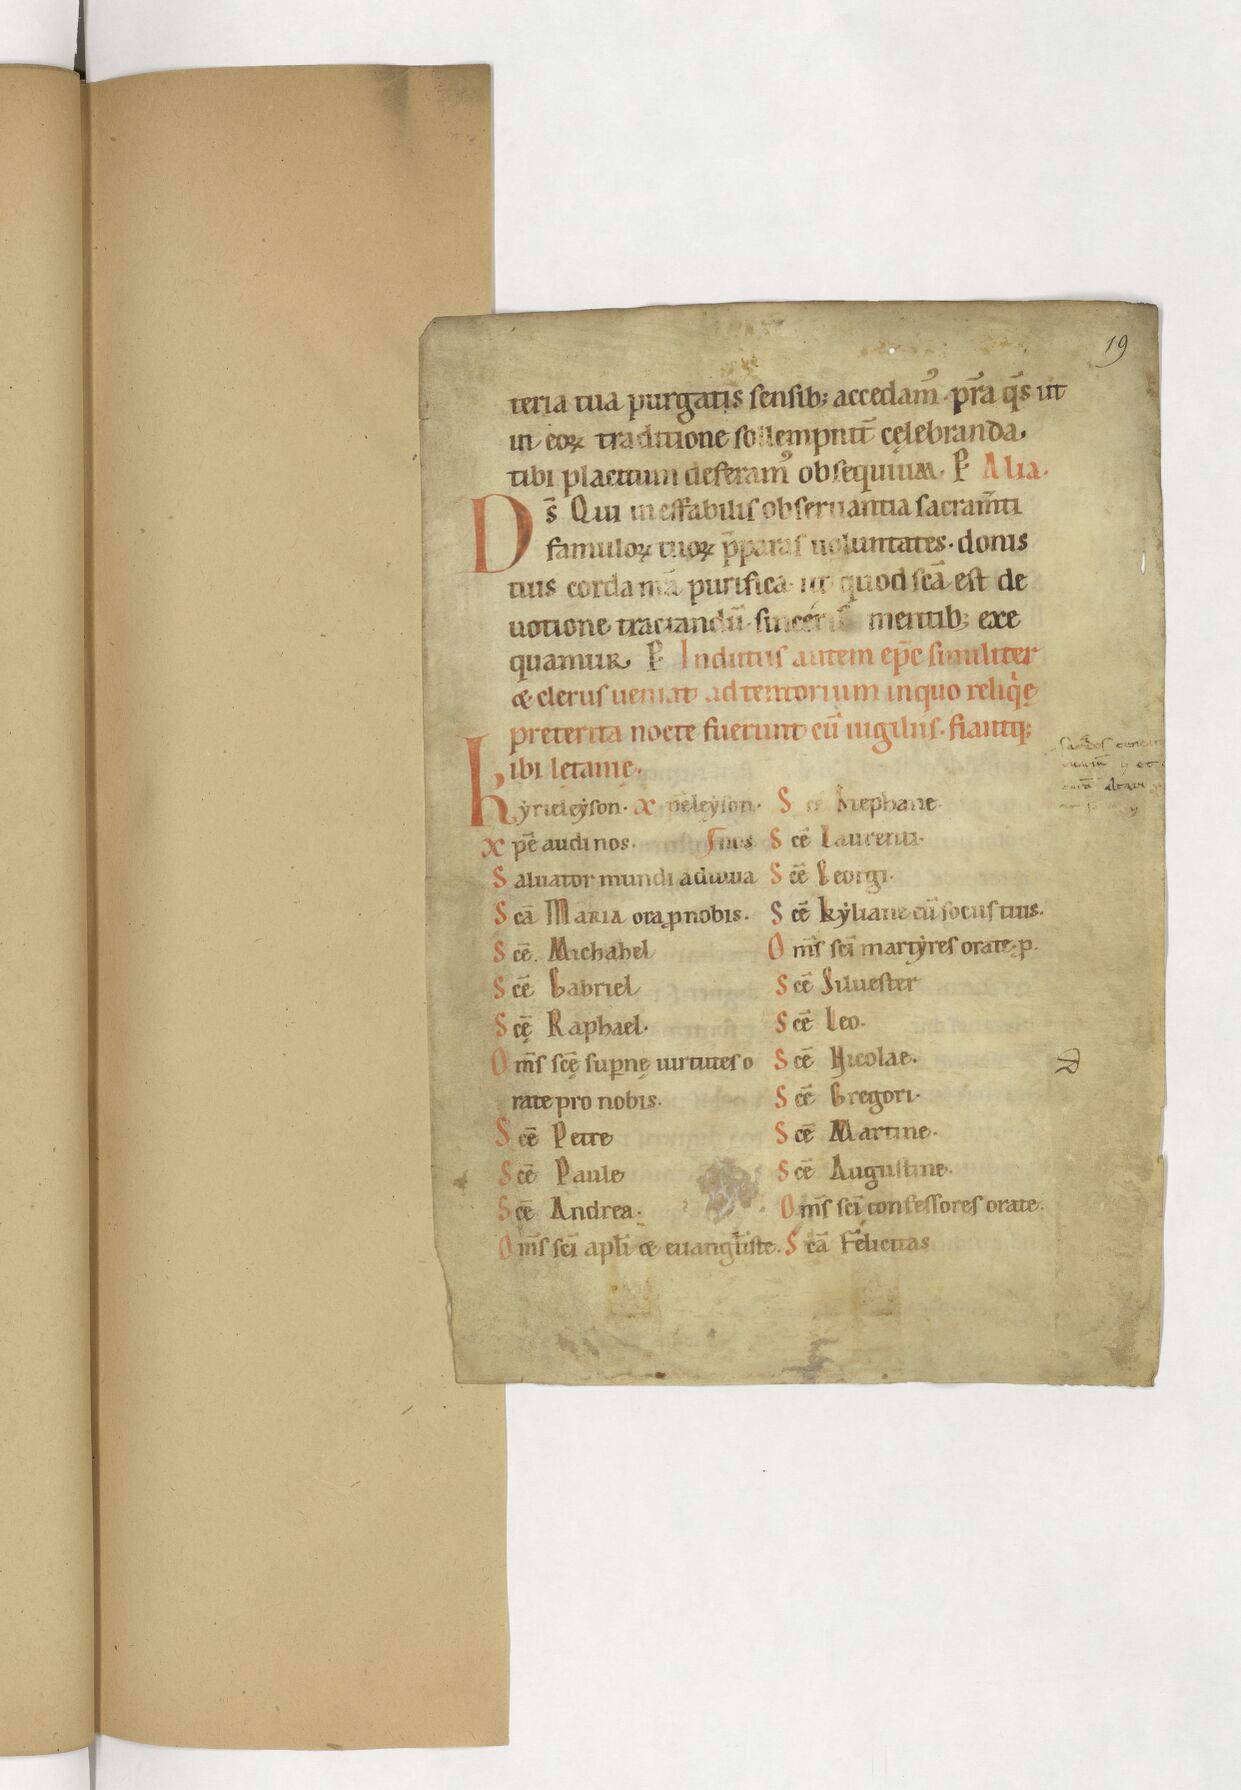 19
teria tua purgatis sensib; accedam᷒. p̄ra q̄s ut
in eoꝝ traditione sollempnit̄ cęlebranda
tibi placitum deferam᷒ obsequium. P Alia.
Ds̄ Qui ineffabilis obseruantia sacram̄ti
famuloꝝ tuoꝝ p̄paras uoluntates. donis
tuis corda nr̄a purifica. ut quod sc̄a est de
uotione tractandū. sinceris mentib; exe
quamur P Indutus autem ep̄c similiter
& clerus ueniat ad tentorium in quo reliq̇ę
preterita nocte fuerunt cū uigiliis. fiantq;
ibi lętanię.
Kẏrieleẏson. xp̄eleẏson.
xp̄e audi nos. Tiıs.
Saluator mundi adiuua
Sc̄a Maria ora p nobis.
Sc̄e. Michahel
Sc̄e Gabriel
Sc̄ę Raphael.
Om̄s sc̄ę supnę uirtutes o
rate pro nobis.
Sc̄e Petre
Sc̄e Paule
Sc̄e Andrea.
Om̄s sc̄i apl̄i & euangl̄iste.
Sc̄e Stephane.
Sc̄e Laurenti.
Sc̄e Georgi.
Sc̄e Kẏliane cū sociis tuis.
Om̄s sc̄i martẏres orate. p.
Sc̄e Siluester
Sc̄e Leo.
Sc̄e Nicolae.
Sc̄e Gregori.
Sc̄e Martine.
Sc̄e Augustine.
Om̄s sc̄i confessores orate.
Sc̄a Felicitas